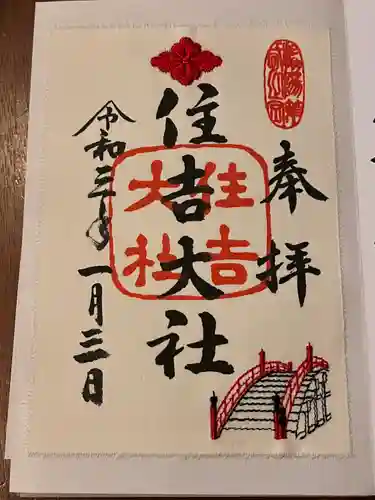 奉拝
住吉大社
住吉大社
令和三年一月三日